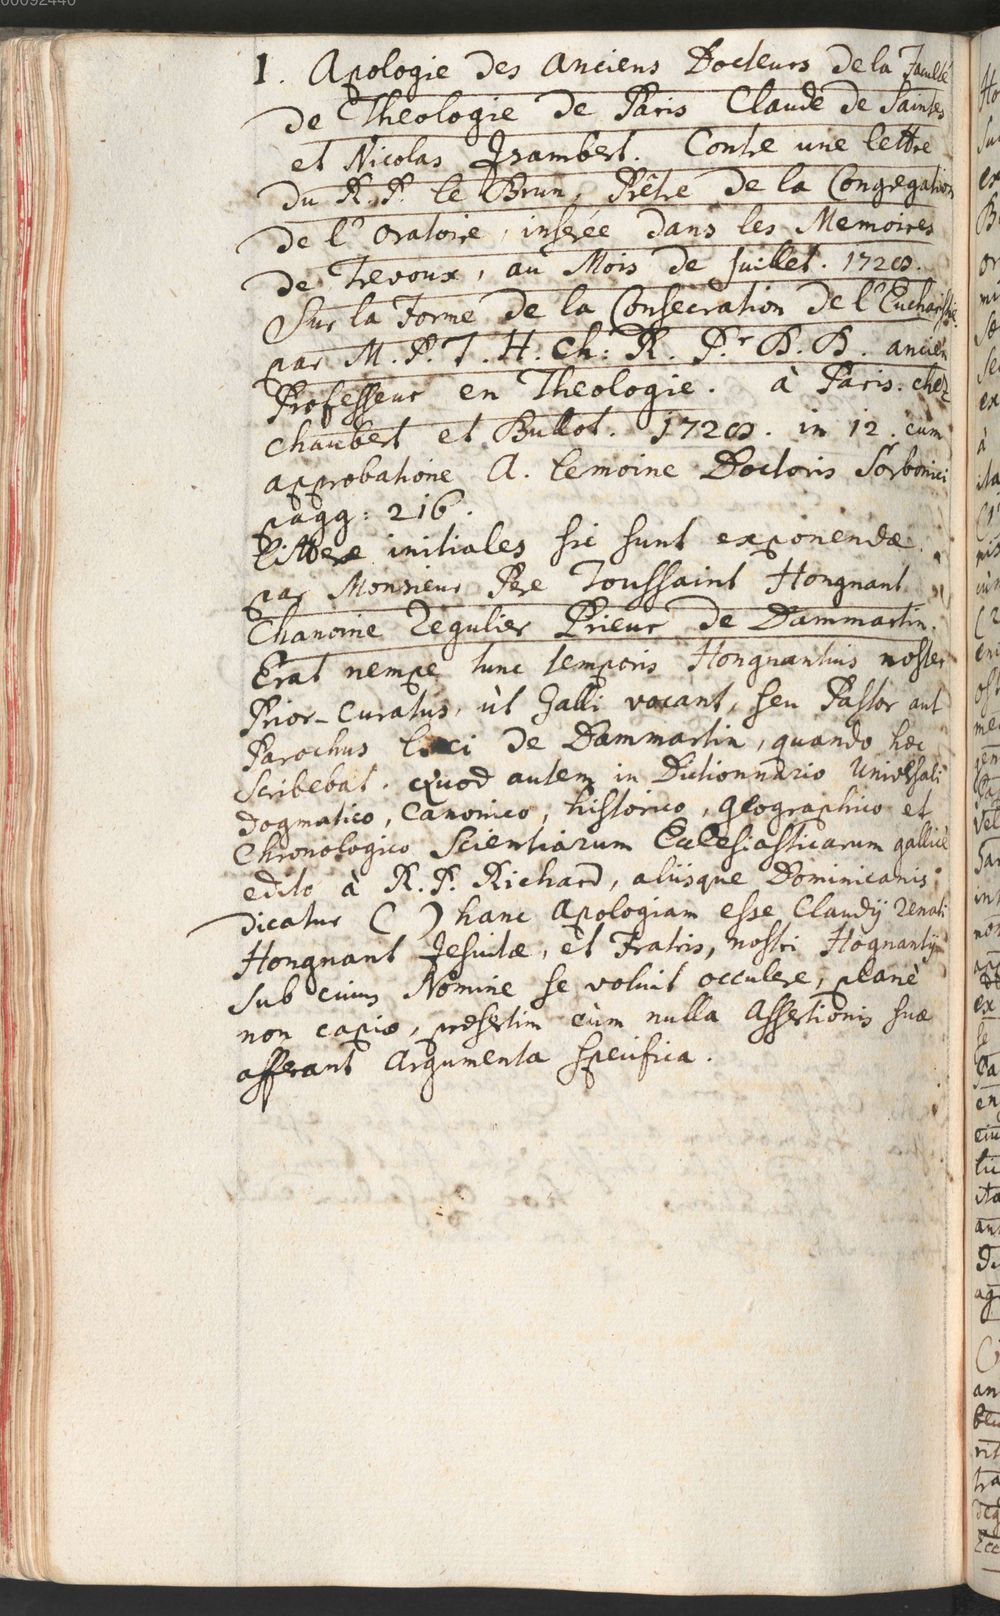 00092440
1. Apologie des anciens Docteurs de la Faculté
de Theologie de Paris Claude de Saintes
et Nicolas Isambert. Contre une lettre
du R. P. le Brun, Prêtre de la Congregation
de l'Oratoire, inserée dans les Memoires
de Trevoux, au Mois de Juillet. 1728.
Sur la Forme de la Consecration de l'Eucharistie.
par M. P. T. H. Ch: R. P.r D. D. ancien
Professeur en Theologie. à Paris. chez
Chaubert et Bullot. 1728. in 12. cum
approbatione A. lemoine Doctoris Sorbonici
pagg: 216.
Litteræ initiales sic sunt exponendæ.
par Monsieur Pere Toussaint Hongnant
Chanoine Regulier Prieur de Dammartin.
Erat nempe tunc temporis Hongnantius noster
Prior-Curatus, ùt Galli vocant, seu Pastor aut
Parochus loci de Dammartin, quando hæc
Scribebat. Quod autem in Dictionnario Universali
Dogmatico, Canonico, historico, geographico et
Chronologico Scientiarum Ecclesiasticarum gallicè
edito à R. P. Richard, aliisque Dominicanis
dicatur ( ) hanc Apologiam esse Claudij Renati
Hongnant Jesuitæ, et Fratris, nostri Hognantij
sub cuius Nomine se voluit occulere, planè
non capio, præsertim cùm nulla Assertionis suæ
afferant Argumenta specifica.